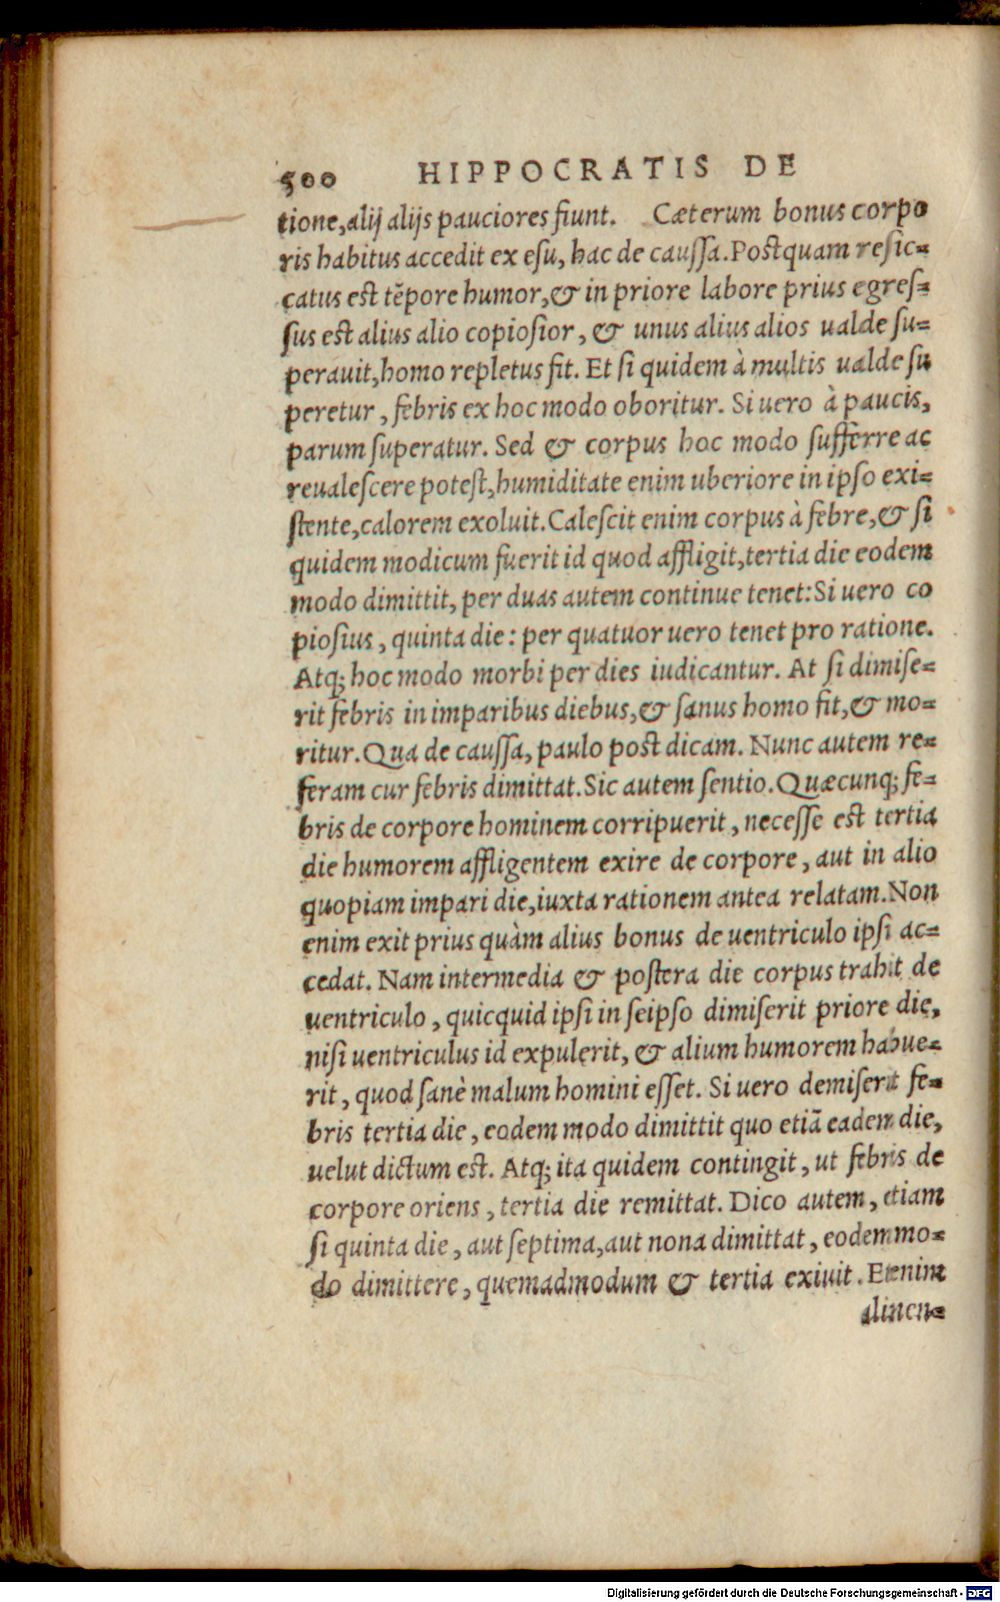 500 HIPPOCRATIS DE
tione,alij alijs pauciores fiunt. Cæterum bonus corpo
ris habitus accedit ex esu, hac de caussa.Postquam resic-
catus est tẽpore humor,& in priore labore prius egres-
sus est alius alio copiosior, & unus alius alios ualde su-
perauit,homo repletus fit. Et si quidem à multis ualde su
peretur, febris ex hoc modo oboritur. Si uero à paucis,
parum superatur. Sed & corpus hoc modo sufferre ac
reualescere potest,humiditate enim uberiore in ipso exi-
stente,calorem exoluit.Calescit enim corpus à febre,& si
quidem modicum fuerit id quod affligit,tertia die eodem
modo dimittit, per duas autem continue tenet:Si uero co
piosius, quinta die: per quatuor uero tenet pro ratione.
Atq; hoc modo morbi per dies iudicantur. At si dimise-
rit febris in imparibus diebus,& sanus homo fit,& mo-
ritur.Qua de caussa, paulo post dicam. Nunc autem re-
feram cur febris dimittat.Sic autem sentio.Quæcunq; fe-
bris de corpore hominem corripuerit, necesse est tertia
die humorem affligentem exire de corpore, aut in alio
quopiam impari die,iuxta rationem antea relatam.Non
enim exit prius quàm alius bonus de uentriculo ipsi ac-
cedat. Nam intermedia & postera die corpus trahit de
uentriculo, quicquid ipsi in seipso dimiserit priore die,
nisi uentriculus id expulerit, & alium humorem habue-
rit, quod sanè malum homini esset. Si uero demiserit fe-
bris tertia die, eodem modo dimittit quo etiã eadem die,
uelut dictum est. Atq; ita quidem contingit, ut febris de
corpore oriens, tertia die remittat. Dico autem, etiam
si quinta die, aut septima,aut nona dimittat, eodem mo-
do dimittere, quemadmodum & tertia exiuit. Etenim
alimen-
Digitalisierung gefördert durch die Deutsche Forschungsgemeinschaft - DFG